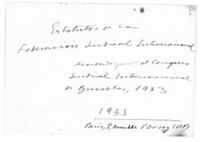 Estatutos de la
Federacion Sindical Internacional
Acordados por el Congreso
Sindical Internacional
de Bruselas, 1933
1933
Paris,